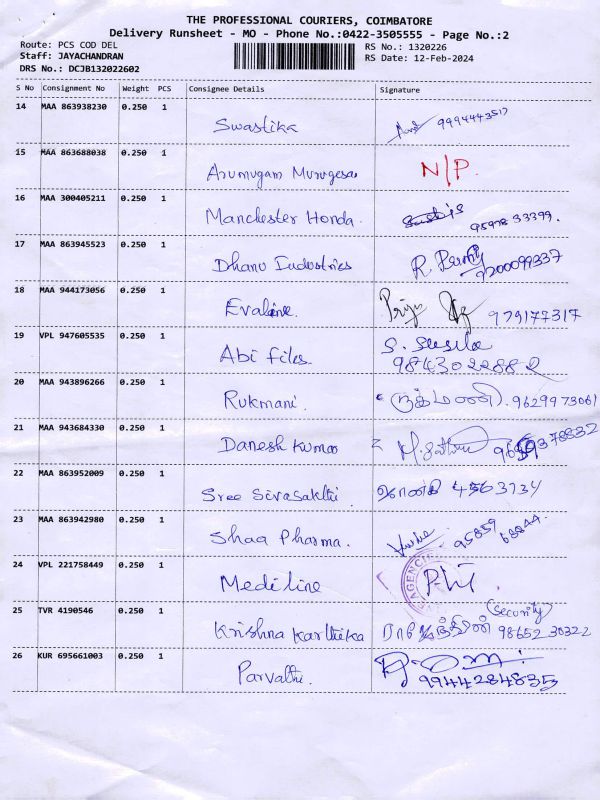 THE PROFESSIONAL COURIERS, COIMBATORE
Delivery Runsheet - MO - Phone No.:0422-3505555 - Page No.:2
Route: PCS COD DEL RS No.: 1320226
Staff: JAYACHANDRAN RS Date: 12-Feb-2024
DRS No.: DCJB132022602
S No Consignment No Weight PCS Consignee Details Signature
14 MAA 863938230 0.250 1
Swastika 9994443517
15 MAA 863688038 0.250 1
Arumugam Murugesan N/P.
16 MAA 300405211 0.250 1
Manchester Honda. 95978 33399.
17 MAA 863945523 0.250 1
Dhanu Industries R. 9200099337
18 MAA 944173056 0.250 1
Evaline. Priya 979177317
19 VPL 947605535 0.250 1
Abi files. S. Susila
9843022882
20 MAA 943896266 0.250 1
Rukmani. ருக்மணி. 9629973061
21 MAA 943684330 0.250 1
Danesh Kumar
22 MAA 863952009 0.250 1
Sree Sivasakthi ஜானகி 4563734
23 MAA 863942980 0.250 1
Shaa Pharma. 95859 68844.
24 VPL 221758449 0.250 1
Mediline
25 TVR 4190546 0.250 1
(Security)
Krishna Karthika 98652 30322
26 KUR 695661003 0.250 1
Parvathi. 9944284835